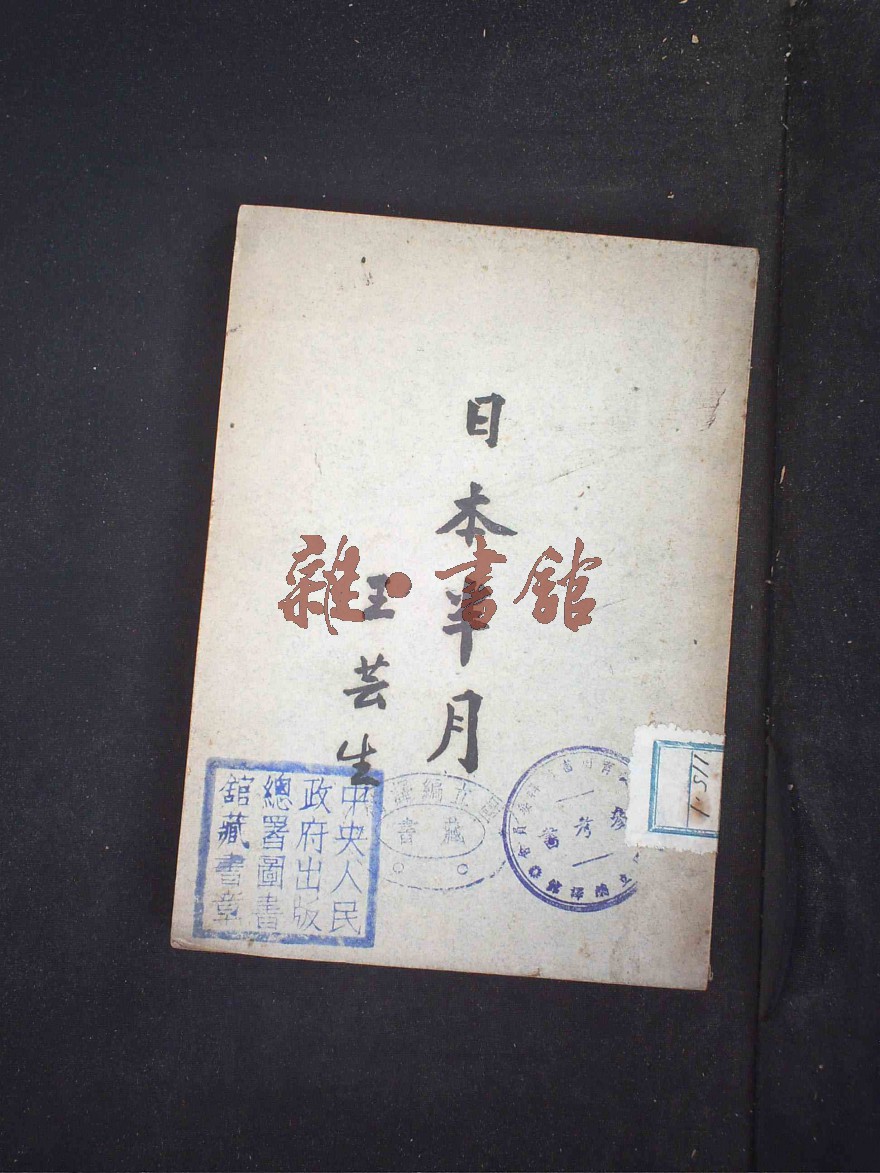 日本半月
王芸生
雜·書館
中央人民
政府出版
總署圖書
館藏書章
編
藏書